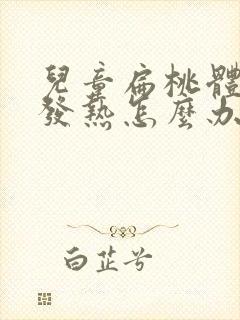 兒童扁桃體
發熱怎麼办
白芷兮